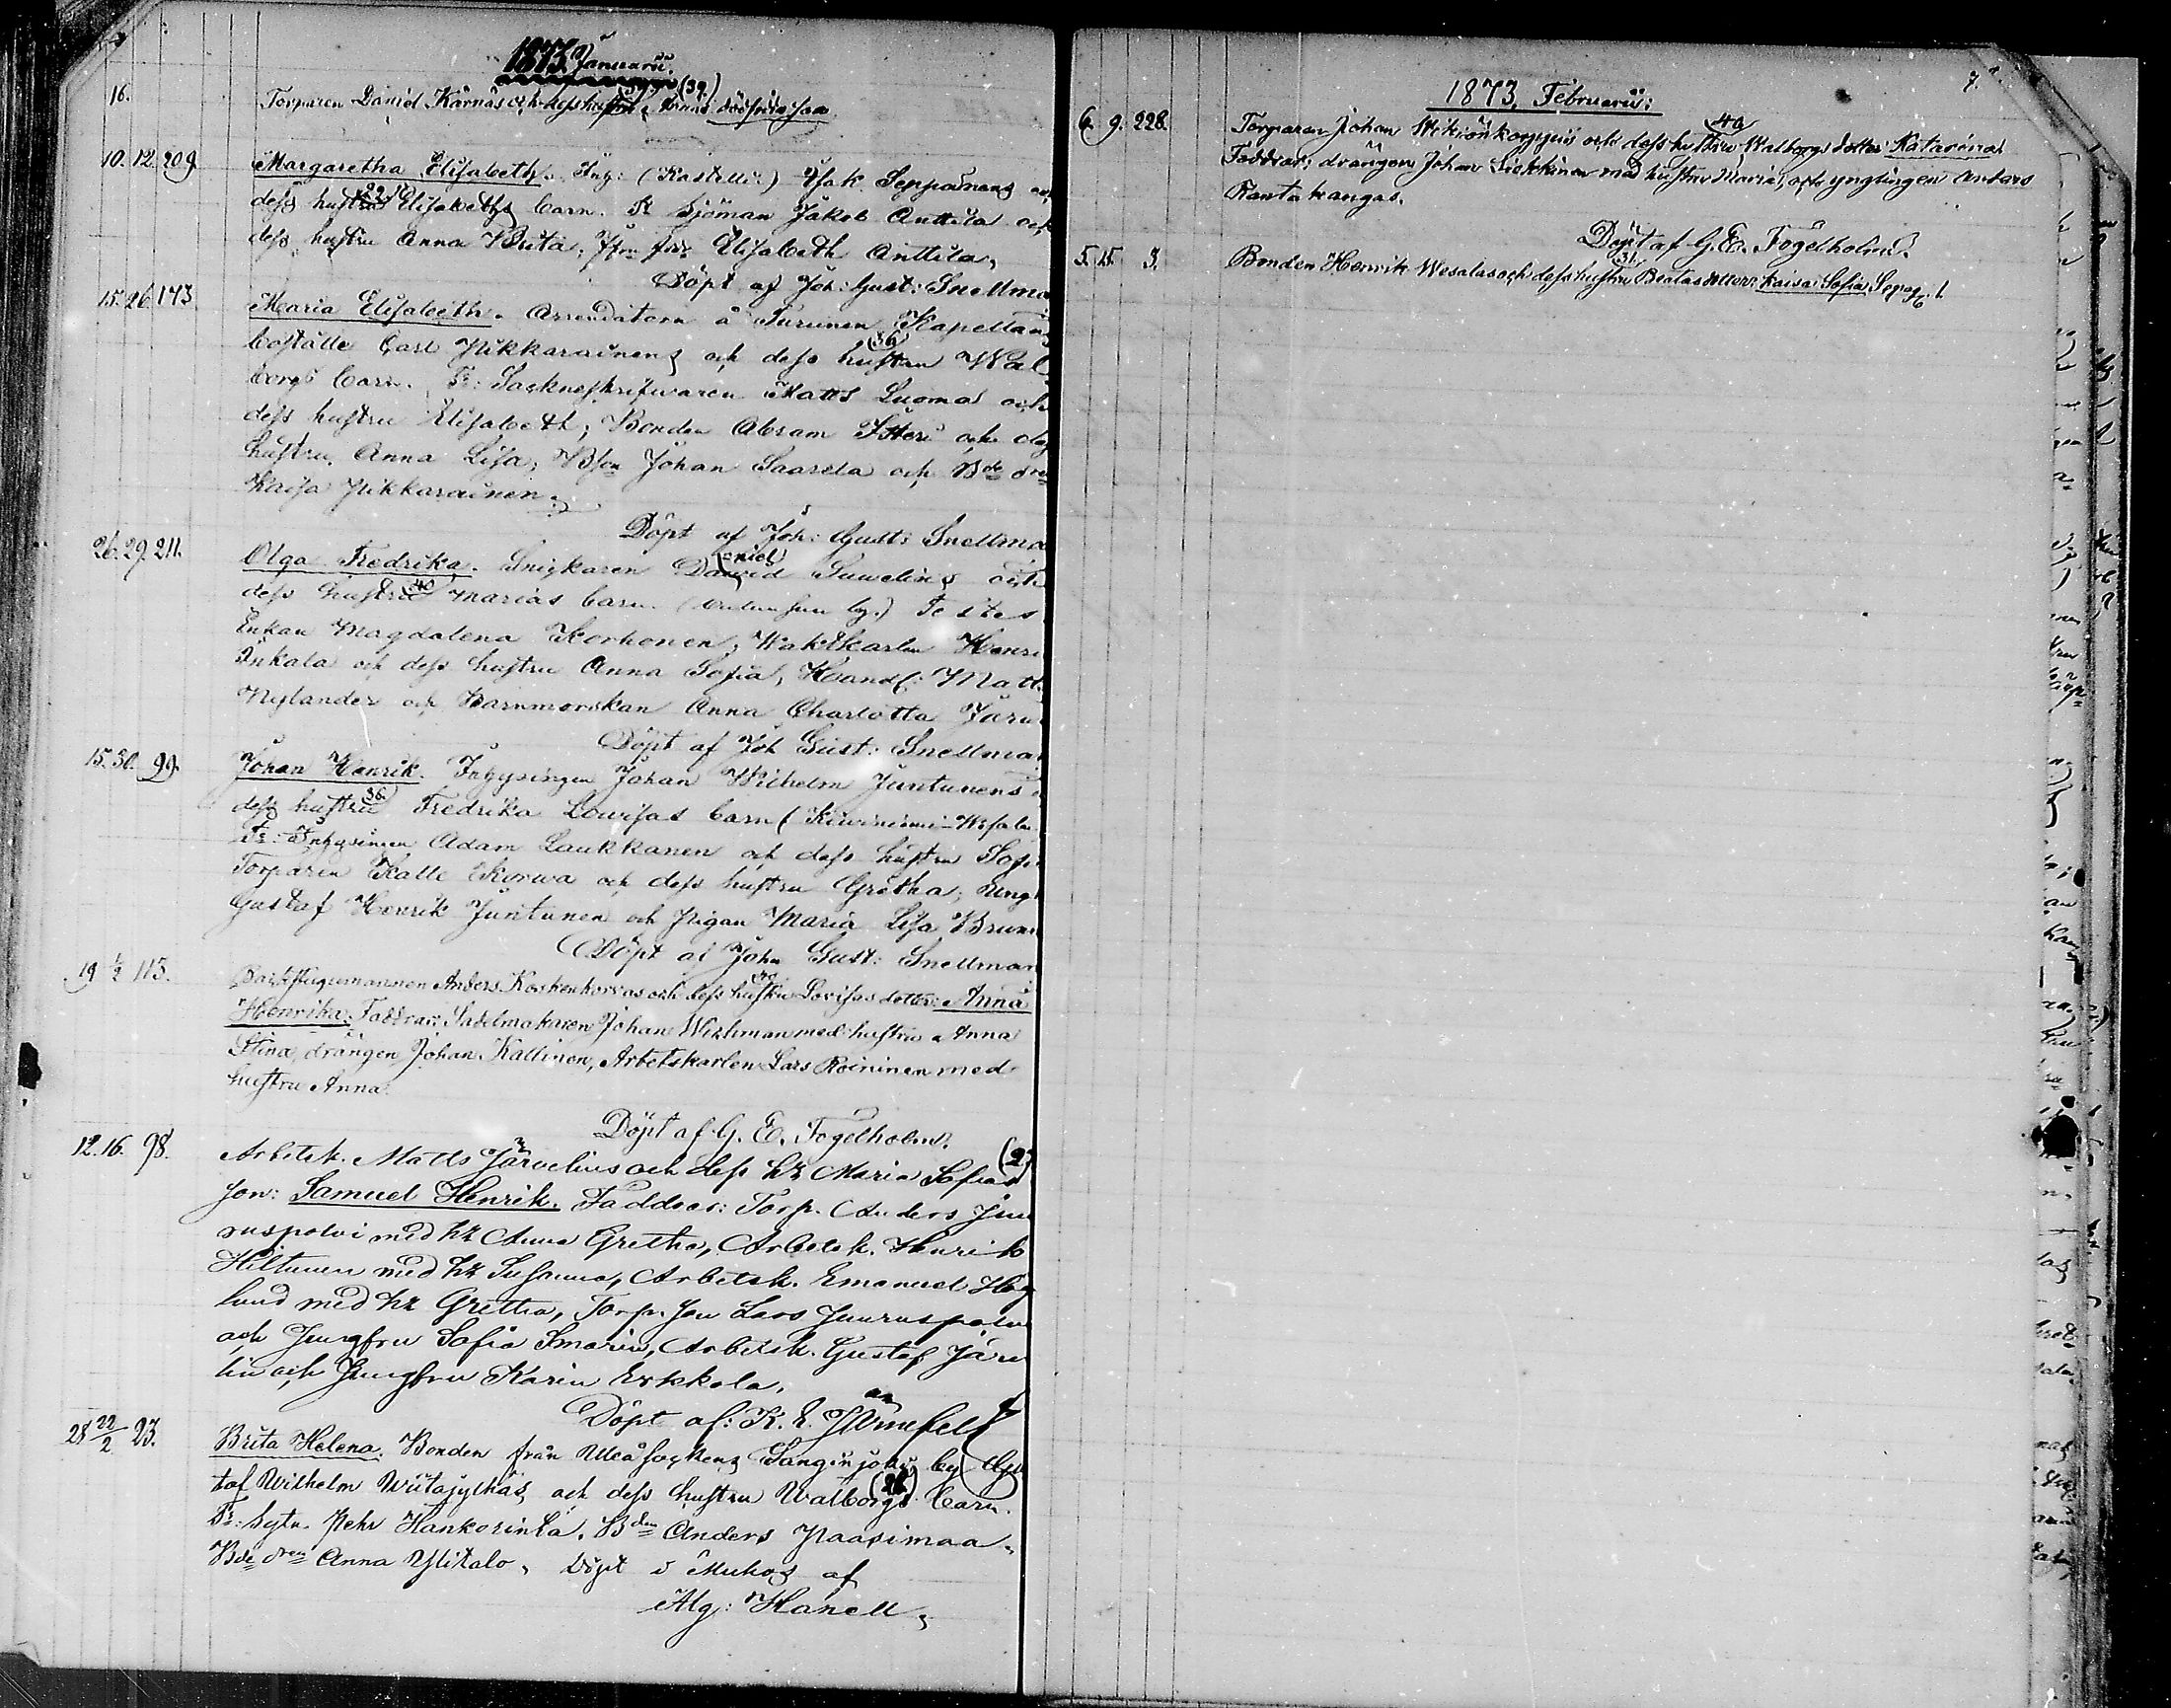 1873. Januarii.
16. Torparen David Kärnäs och dess hustru (39.) Annas dödfödde son
10. 12. 209. Margaretha Elisabeth. Inh: (Kastelli.) Isak Seppänens
dess hustrus (29) Elisabeths barn. Fr Sjöman Jakob Anttila och
dess hustru Anna Brita; Elisabeth Anttila,
Döpt af Joh: Gust: Snellma
15. 26. 173. Maria Elisabeth. Arrendatorn å Turunen Kapellans
boställe Carl Pikkarainens och dess hustru (36) Wal
borgs barn. Fr: Sockneskrifwaren Matts Luoma och
dess hustru Elisabeth; Bonden Abram Itteri och
hustru Anna Lisa; Bson Johan Saarela och Bde
Kaisa Pikkarainen.
Döpt af Joh: Gust: Snellma
26. 29. 211. Olga Fredrika. Snickaren David (niel) Suwelins och
dess hustrus (40) Marias barn. Testes
Enkan Magdalena Korhonen; Waktkarlen Henri
Inkala och dess hustru Anna Sofia, Handl: Matt
Nylander och Barnmorskan Anna Charlotta
Döpt af Joh Gust: Snellma
15. 30. 99. Johan Henrik. Inhysingen Johan Wilhelm Juntunens
dess hustrus (36) Fredrika Lowisas barn (Kiwiniemi-
Fr: Inhysingen Adam Laukkanen och dess hustru
Torparen Kalle Korwa och dess hustru Gretha; Yng
Gustaf Henrik Juntunen och Pigan Maria Lisa
Döpt af Joh Gust: Snellman
19 1/2 115. Backstugumannen Anders Koskenkorwas och dess hustru Lovisas dotter: Anna
Henrika; Faddrar: Sadelmakaren Johan Wichman med hustru Anna
Stina, drängen Johan Kallinen, Arbetskarlen Lars Roininen med
hustru Anna.
Döpt af G. E. Fogelholm.
12. 16. 98. Arbetsk. Matts Järvelins och dess hr Maria Sofias
son: Samuel Henrik. Faddrar: Torp. Anders Juu
ruspolvi med hr Anna Gretha, Arbetsk. Henrik
Hiltunen med hr Susanna, Arbetsk. Emanuel Hög
lund med hr Gretha, Torp. son Lars Juuruspolv
och Jungfru Sofia, Arbetsk. Gustaf Järv
lin och Jungfru Karin Erkkola.
Döpt af: K. E. Järnefelt
28 22/2 23. Brita Helena. Bonden från Uleå Sockens Sanginjoki by Gus
taf Wilhelm Wiitajylhäs, och dess hustru Walborgs (26) barn.
Fr: Sytn. Pehr Hankorinta. Bden Anders Paasimaa,
Bde drn Anna Ylitalo, Döpt i Muhos af
Alg: Hanell,
7.
1873, Februarii:
6. 9. 228. Torparen Johan och dess hustru (40) Walborgs dotter Katarina.
Faddrar: drängen Johan Liekkinen med hustru Maria, och ynglingen Anders
Rantakangas.
Döpt af G. E. Fogelholm.
5. 15. 3. Bonden Henrik Wesalas och dess hustru (31) Beatas dotter: Kaisa Sofia.